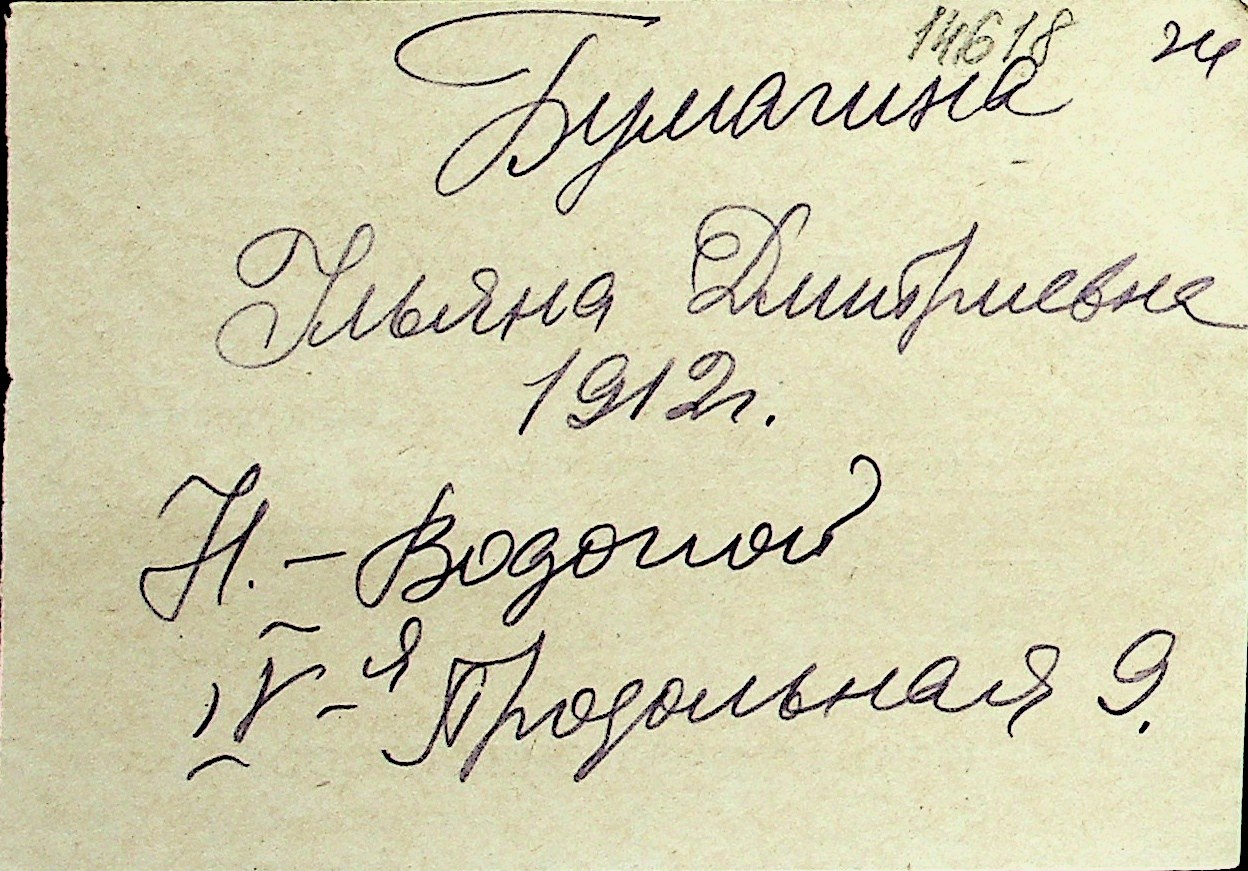 14618 ж
Бумагина
Ульяна Дмитриевна
1912г.
Н. - Водопой
IV-я Продольная 9.